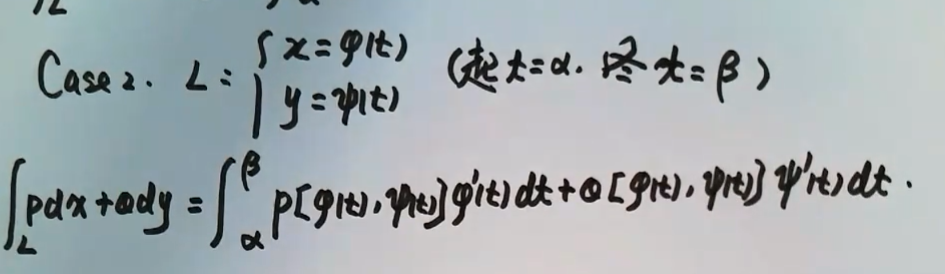 Case 2. L: { x=φ(t)
y=ψ(t) (起 t=α. 终 t=β)
∫_L Pdx+Qdy = ∫_α^β P[φ(t),ψ(t)]φ'(t)dt+Q[φ(t),ψ(t)]ψ'(t)dt.